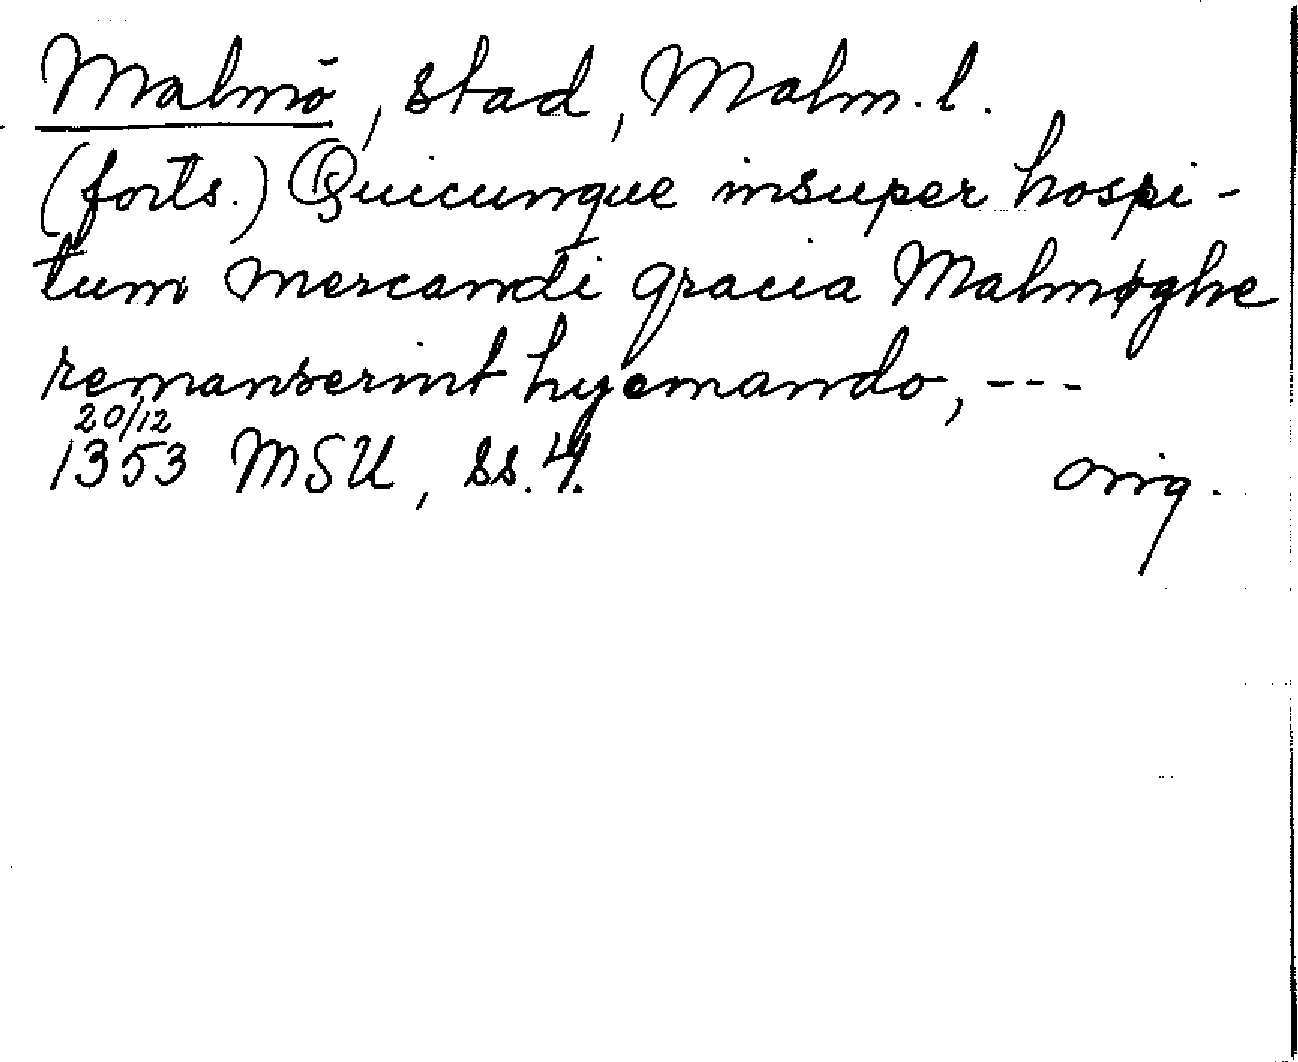 Malmö, stad, Malm. l.
(forts.) Quicunque insuper hospi-
tum mercandi gracia Malmøghe
remanserint hyemando, ---
20/12
1353 MSU, ss. 4. orig.